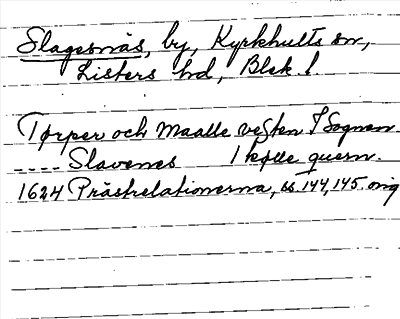 Slagesnäs, by, Kyrkhults sn,
Listers hd, Blek l.
Torper och Maalle vesten I Sognen
.... Slavenes 1 kølle quern.
1624 Prästrelationerna, ss. 144, 145. orig